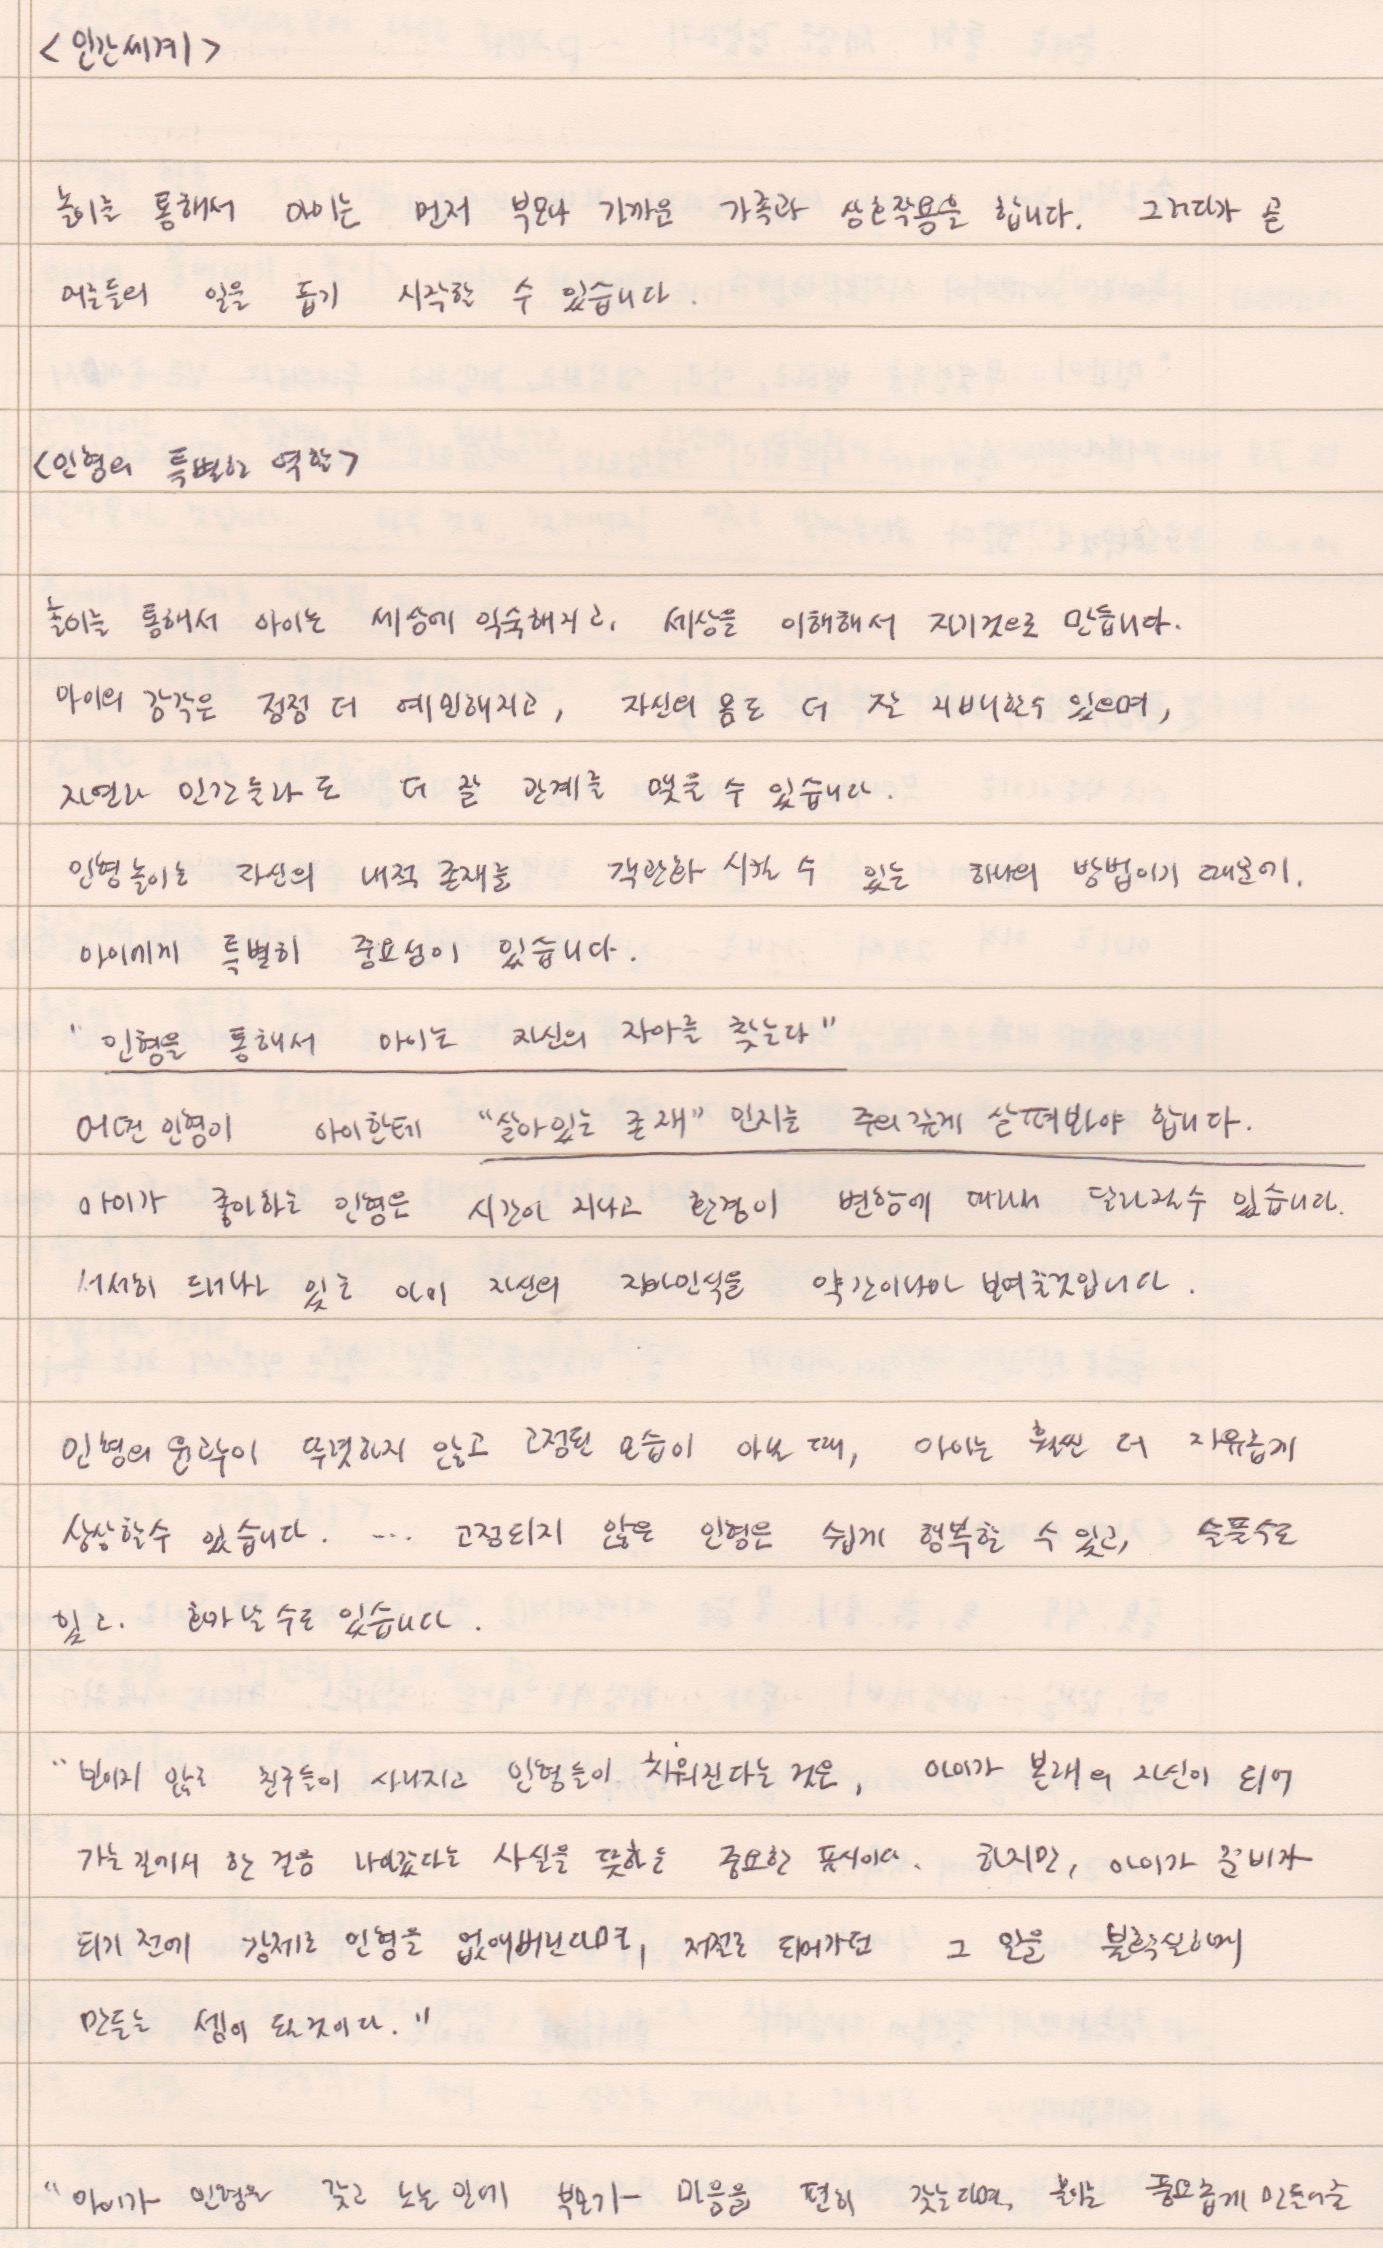 <인간세계>
놀이를 통해서 아이는 먼저 부모나 가까운 가족과 상호작용을 합니다. 그러다가 곧
어른들의 일을 돕기 시작할 수 있습니다.
<인형의 특별한 역할>
놀이를 통해서 아이는 세상에 익숙해지고, 세상을 이해해서 자기것으로 만듭니다.
아이의 감각은 점점 더 예민해지고, 자신의 몸도 더 잘 지배할수 있으며,
자연과 인간들과도 더 잘 관계를 맺을 수 있습니다.
인형놀이는 자신의 내적 존재를 객관화 시킬 수 있는 하나의 방법이기 때문에,
아이에게 특별히 중요성이 있습니다.
"인형을 통해서 아이는 자신의 자아를 찾는다"
어떤 인형이 아이한테 "살아있는 존재" 인지는 주의깊게 살펴봐야 합니다.
아이가 좋아하는 인형은 시간이 지나고 환경이 변함에 따라서 달라질수 있습니다.
서서히 드러나고 있는 아이 자신의 자아인식을 약간이나마 보여줄것입니다.
인형의 윤곽이 뚜렷하지 않고 고정된 모습이 아닐 때, 아이는 훨씬 더 자유롭게
상상할수 있습니다. .... 고정되지 않은 인형은 쉽게 행복할 수 있고, 슬플수도
있고. 화가날 수도 있습니다.
"보이지 않는 친구들이 사라지고 인형들이 치워진다는 것은, 아이가 본래의 자신이 되어
가는 길에서 한 걸음 나아갔다는 사실을 뜻하는 중요한 표시이다. 하지만, 아이가 준비가
되기 전에 강제로 인형을 없애버린다면, 저절로 되어가던 그 일을 불확실하게
만드는 셈이 될것이다."
"아이가 인형을 갖고 노는 일에 부모가 마음을 편히 갖는다면, 놀이를 풍요롭게 만들어줄